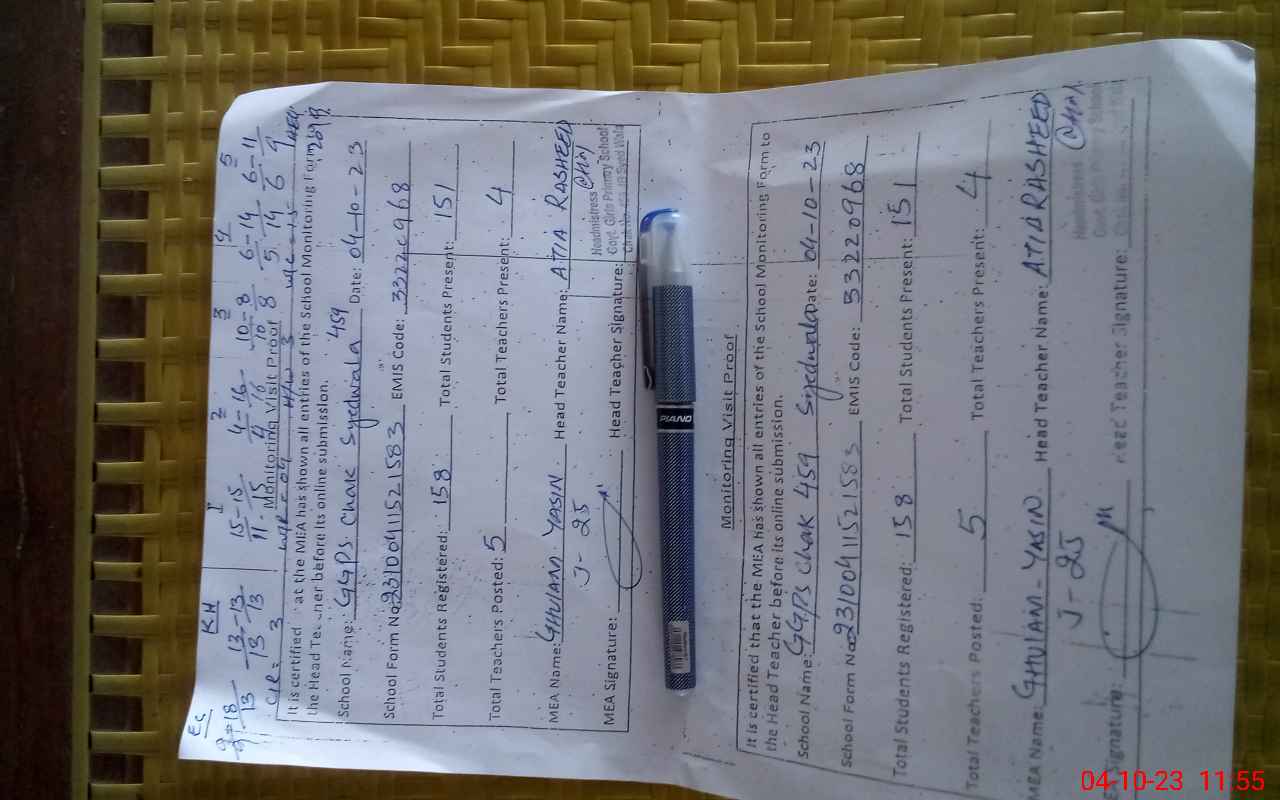 Ec KH I 2 3 4 5
9-18 13-13 15-15 4-16 10-8 6-14 6-11
13 13 13 11 15 4 16 10 8 5 14 6 9
Monitoring Visit Proof
It is certified at the MEA has shown all entries of the School Monitoring Form
the Head Te ner before its online submission.
459
School Name: GGPS Chak Syedwala Date: 04-10-23
School Form No: 23100411521583 EMIS Code: 33220968
Total Students Registered: 158 Total Students Present: 151
Total Teachers Posted: 5 Total Teachers Present: 4
MEA Name: GHULAM YASIN Head Teacher Name: ATIA RASHEED
J-25
MEA Signature: Head Teacher Signature:
Headmistress
Govt. Girls Primary School
Monitoring Visit Proof
It is certified that the MEA has shown all entries of the School Monitoring Form to
the Head Teacher before its online submission.
School Name: GGPS Chak 459 Syedwala Date: 04-10-23
School Form No: 23100411521583 EMIS Code: 33220968
Total Students Registered: 158 Total Students Present: 151
Total Teachers Posted: 5 Total Teachers Present: 4
MEA Name: GHULAM-YASIN Head Teacher Name: ATIA RASHEED
J-25
Signature: Head Teacher Signature:
Headmistress
PIANO
04-10-23 11:55